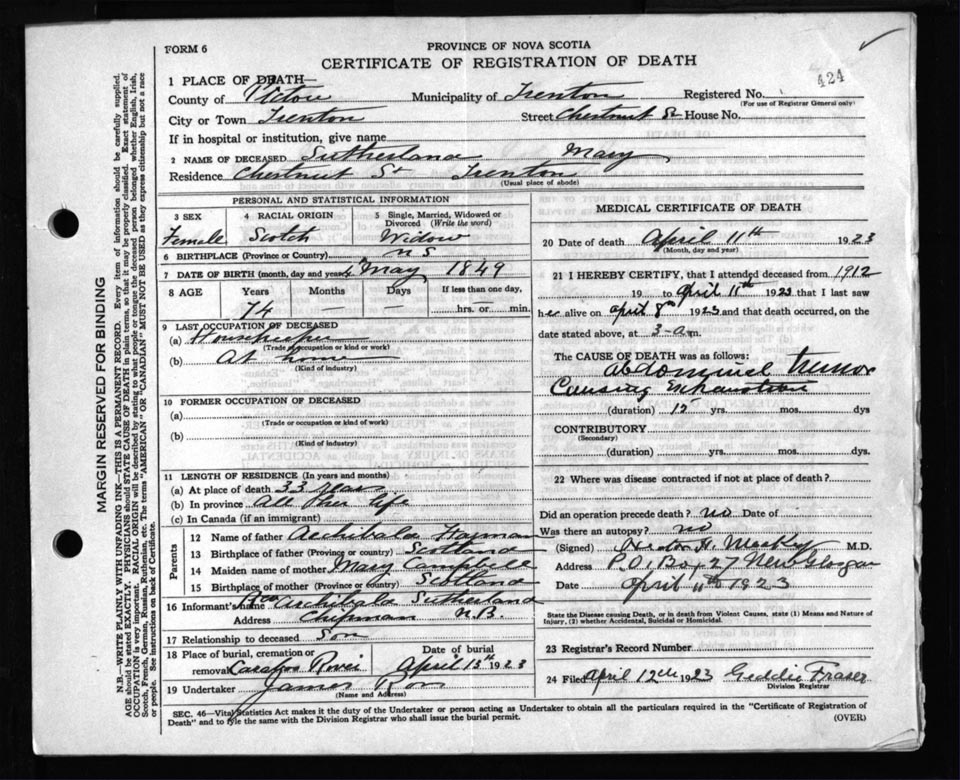 FORM 6
PROVINCE OF NOVA SCOTIA
CERTIFICATE OF REGISTRATION OF DEATH
424
1 PLACE OF DEATH—
County of Pictou Municipality of Trenton Registered No.
(For use of Registrar General only)
City or Town Trenton Street Chestnut St House No.
If in hospital or institution, give name
2 NAME OF DECEASED Sutherland Mary
Residence Chestnut St Trenton
(Usual place of abode)
PERSONAL AND STATISTICAL INFORMATION
3 SEX 4 RACIAL ORIGIN 5 Single, Married, Widowed or Divorced (Write the word)
Female Scotch Widow
6 BIRTHPLACE (Province or Country) N S
7 DATE OF BIRTH (month, day and year) May 1849
8 AGE Years Months Days If less than one day,
74 — — hrs. or — min.
9 LAST OCCUPATION OF DECEASED
(a) Housekeeper
(Trade or occupation or kind of work)
(b) At home
(Kind of industry)
10 FORMER OCCUPATION OF DECEASED
(a)
(Trade or occupation or kind of work)
(b)
(Kind of industry)
11 LENGTH OF RESIDENCE (In years and months)
(a) At place of death 33 years
(b) In province All her life
(c) In Canada (if an immigrant)
Parents
12 Name of father Archibald
13 Birthplace of father (Province or country) Scotland
14 Maiden name of mother Mary Campbell
15 Birthplace of mother (Province or country) Scotland
16 Informant's name Archibald Sutherland
Address Chipman N.B.
17 Relationship to deceased Son
18 Place of burial, cremation or removal Date of burial
April 13th 1923
19 Undertaker James Ross
(Name and Address)
MEDICAL CERTIFICATE OF DEATH
20 Date of death April 11th 1923
(Month, day and year)
21 I HEREBY CERTIFY, that I attended deceased from 1912
19 to April 11th 1923 that I last saw
her alive on April 8th 1923 and that death occurred, on the
date stated above, at 3 a.m.
The CAUSE OF DEATH was as follows:
abdominal tumor
Causing Exhaustion
(duration) 15 yrs. mos. dys
CONTRIBUTORY
(Secondary)
(duration) yrs. mos. dys
22 Where was disease contracted if not at place of death?
Did an operation precede death? no Date of
Was there an autopsy? no
(Signed) M.D.
Address P.O. Box 27 New Glasgow
Date April 11th 1923
State the Disease causing Death, or in death from Violent Causes, state (1) Means and Nature of Injury, (2) whether Accidental, Suicidal or Homicidal.
23 Registrar's Record Number
24 Filed April 12th 1923 Geddie Fraser
Division Registrar
SEC. 46—Vital Statistics Act makes it the duty of the Undertaker or person acting as Undertaker to obtain all the particulars required in the "Certificate of Registration of
Death" and to file the same with the Division Registrar who shall issue the burial permit.
(OVER)
MARGIN RESERVED FOR BINDING
N.B.—WRITE PLAINLY WITH UNFADING INK—THIS IS A PERMANENT RECORD. Every item of information should be carefully supplied.
AGE should be stated EXACTLY. PHYSICIANS should STATE CAUSE OF DEATH in plain terms, so that it may be properly classified. Exact statement of
OCCUPATION is very important. RACIAL ORIGIN will be described by stating to what people or tongue the deceased person belonged whether English, Irish,
Scotch, French, German, Russian, Ruthenian, etc. The terms "AMERICAN" or "CANADIAN" MUST NOT BE USED as they express citizenship but not a race
or people. See instructions on back of Certificate.